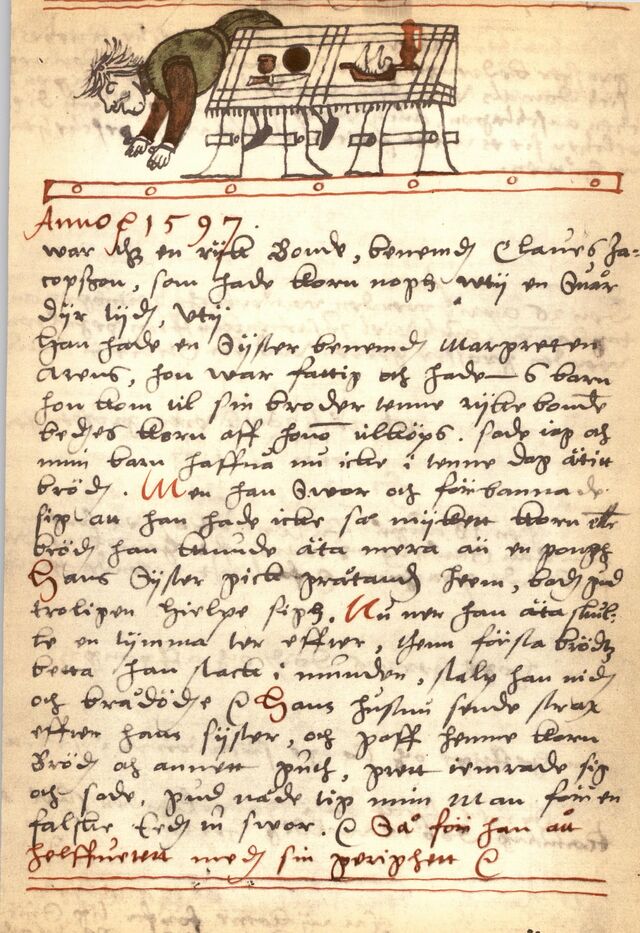 Anno 1597
war thz en rijk Bonde, benemd Claues Ja=
copszon, som hade korn nogh vtij en Suår
dÿr tijd, vtij
Han hade en Sÿster benemd Margreten
Arens, hon war fattig och hade 6 barn
hon kom til sin broder tenne rijke bonde
bedies korn aff hono til köps. sade iag och
min barn haffua nu icke i tenne dag ätitt
bröd. Men han Swor och förbannade
sig att han hade icke så mÿckett korn eller
bröd han kunde äta mera än en gongh
Hans Sÿster gick gråtand heem, bad gud
troligen hielpe sigh. Nu ner han äta skul=
te en tÿmma ter effter, thenn första brödz
betta han stack i munden, stalp han nid
och brådödde Hans hustru sende strax
effter hans sÿster, och gaff henne korn
Bröd och annett gutt, grett iemrade sig
och sade, gud nåde tig min Man för en
falske Eed tu swor. Så för han ått
helffuetett med sin girighett